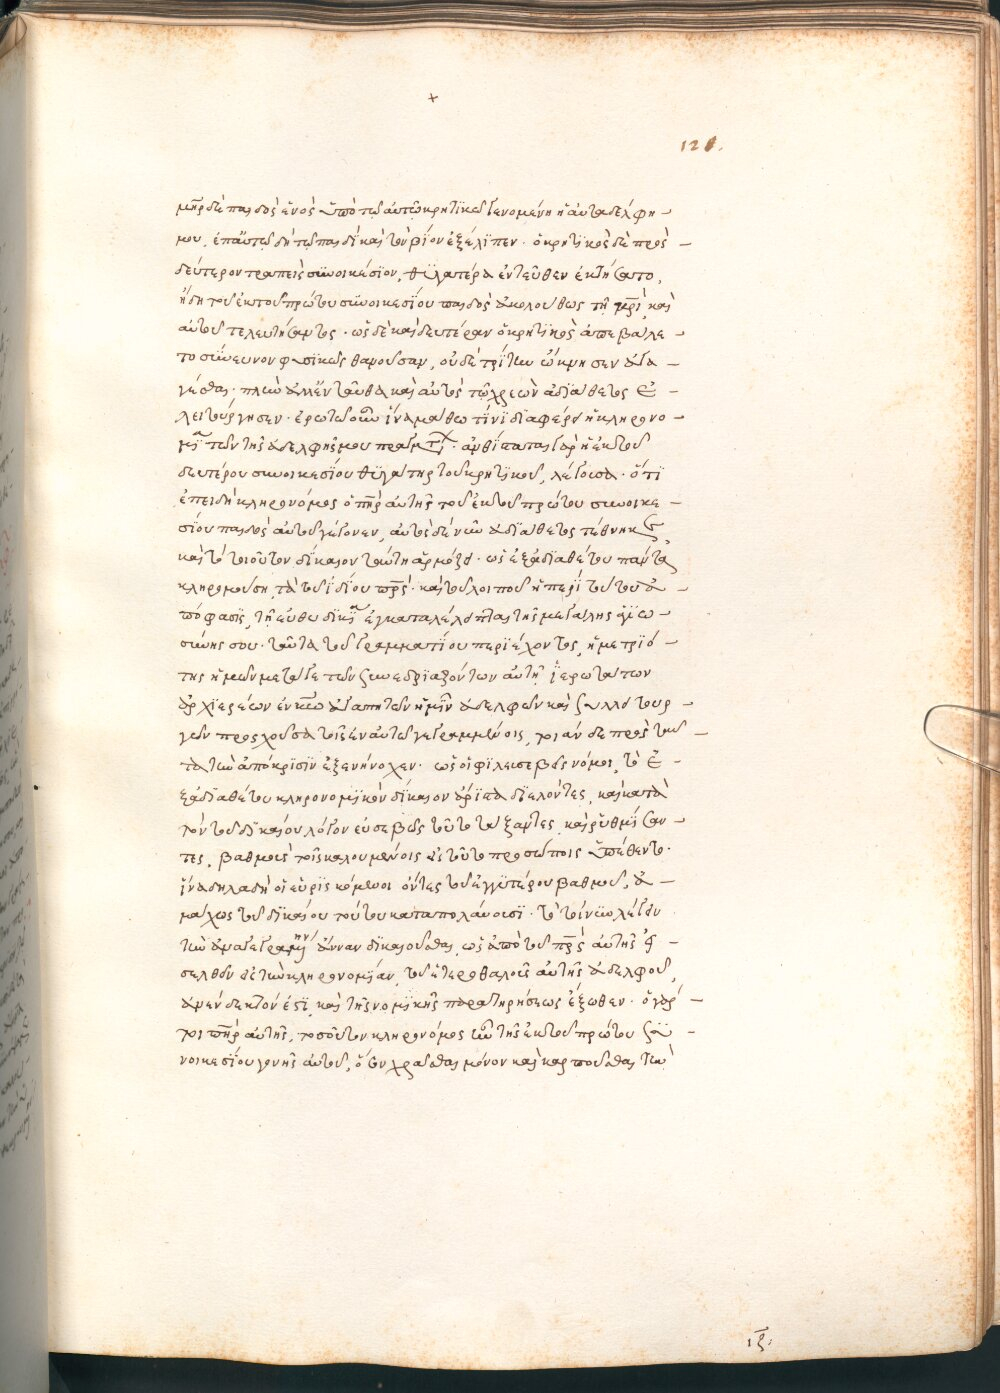 +
121.
μηρ δὲ παιδὸς ἑνὸς ὑπὸ τῷ αὐτῷ κρητικῷ γενομένη ἡ αὐταδέλφη
μου, ἐπ' αὐτῷ δὴ τῷ παιδὶ καὶ τὸν βίον ἐξέλιπεν· ὁ κρητικὸς δὲ πρὸς
δεύτερον τραπεὶς συνοικέσιον, θυγατέρα ἐντεῦθεν ἐκτήσατο,
ἤδη τοῦ ἐκ τοῦ πρώτου συνοικεσίου παιδὸς ἀκολούθως τῇ μρὶ καὶ
αὐτοῦ τελευτήσαντος· ὡς δὲ καὶ δευτέραν ὁ κρητικὸς ἀπεβάλε
το σύνευνον φυσικῶς θανοῦσαν, οὐδὲ τρίτην ὤκνησεν ἀγα
γέσθαι· πλὴν ἀλλ' ἐνταῦθα καὶ αὐτὸς τῷ χρεὼν ἀδιάθετος ἐ
λειτούργησεν· ἐρωτῶ οὖν ἵνα μάθω τίνι διαφέρει ἡ κληρονο
μία τῶν τῆς ἀδελφῆς μου πραγμάτων· ἀνθίσταται γὰρ ἡ ἐκ τοῦ
δευτέρου συνοικεσίου θυγάτηρ τοῦ κρητικοῦ, λέγουσα· ὅτι
ἐπειδὴ κληρονόμος ὁ πηρ αὐτῆς τοῦ ἐκ τοῦ πρώτου συνοικε
σίου παιδὸς αὐτοῦ γέγονεν, αὐτὸς δὲ νῦν ἀδιάθετος τέθνηκε,
καὶ τὸ τοιοῦτον δίκαιον ταύτῃ ἁρμόζει· ὡς ἐξ ἀδιαθέτου πάντα
κληρονομούσῃ τὰ τοῦ ἰδίου πρς· καὶ τοῦ λοιποῦ ἡ περὶ τούτου ἀ
πόφασις, τῇ εὐθυδικίᾳ ἐγκαταλέλειπται τῆς μεγάλης ἁγιω
σύνης σου· ταῦτα τοῦ γραμματίου περιέχοντος, ἡ μετριό
της ἡμῶν μετά γε τῶν συνεδριαζόντων αὐτῇ ἱερωτάτων
ἀρχιερέων ἐν κῳ ἀγαπητῶν ἡμῖν ἀδελφῶν καὶ συλλειτουρ
γῶν προσχοῦσα τοῖς ἐν αὐτῷ γεγραμμένοις, τοιάνδε πρὸς ταῦ
τα τὴν ἀπόκρισιν ἐξενήνοχεν· ὡς οἱ φιλευσεβεῖς νόμοι, τὸ ἐ
ξ ἀδιαθέτου κληρονομικὸν δίκαιον ἄριστα διελόντες, καὶ κατὰ
τὸν τοῦ δικαίου λόγον εὐσεβῶς τοῦτο τάξαντες, καὶ ῥυθμίσαν
τες, βαθμοὺς τοῖς καλουμένοις εἰς τοῦτο προσώποις ὑπέθεντο·
ἵνα δηλαδὴ οἱ εὑρισκόμενοι ὄντες τοῦ ἐγγυτέρου βαθμοῦ, ἀ
μάχως τοῦ δικαίου τούτου καταπολαύουσι· τὸ τοίνυν λέγειν
τὴν ἀναγεγραμμένην ἄνναν δικαιοῦσθαι, ὡς ἀπὸ τοῦ πρς αὐτῆς εἰ
σελθεῖν εἰς τὴν κληρονομίαν, τοῦ ἑτεροθαλοῦς αὐτῆς ἀδελφοῦ,
ἀπρόσδεκτόν ἐστι, καὶ τῆς νομικῆς παρατηρήσεως ἔξωθεν· ὁ γάρ
τοι πηρ αὐτῆς, τοσοῦτον κληρονόμος ἦν τῆς ἐκ τοῦ πρώτου συ
νοικεσίου γονῆς αὐτοῦ, ὅσον χρᾶσθαι μόνον καὶ καρποῦσθαι τὴν
ιξ: